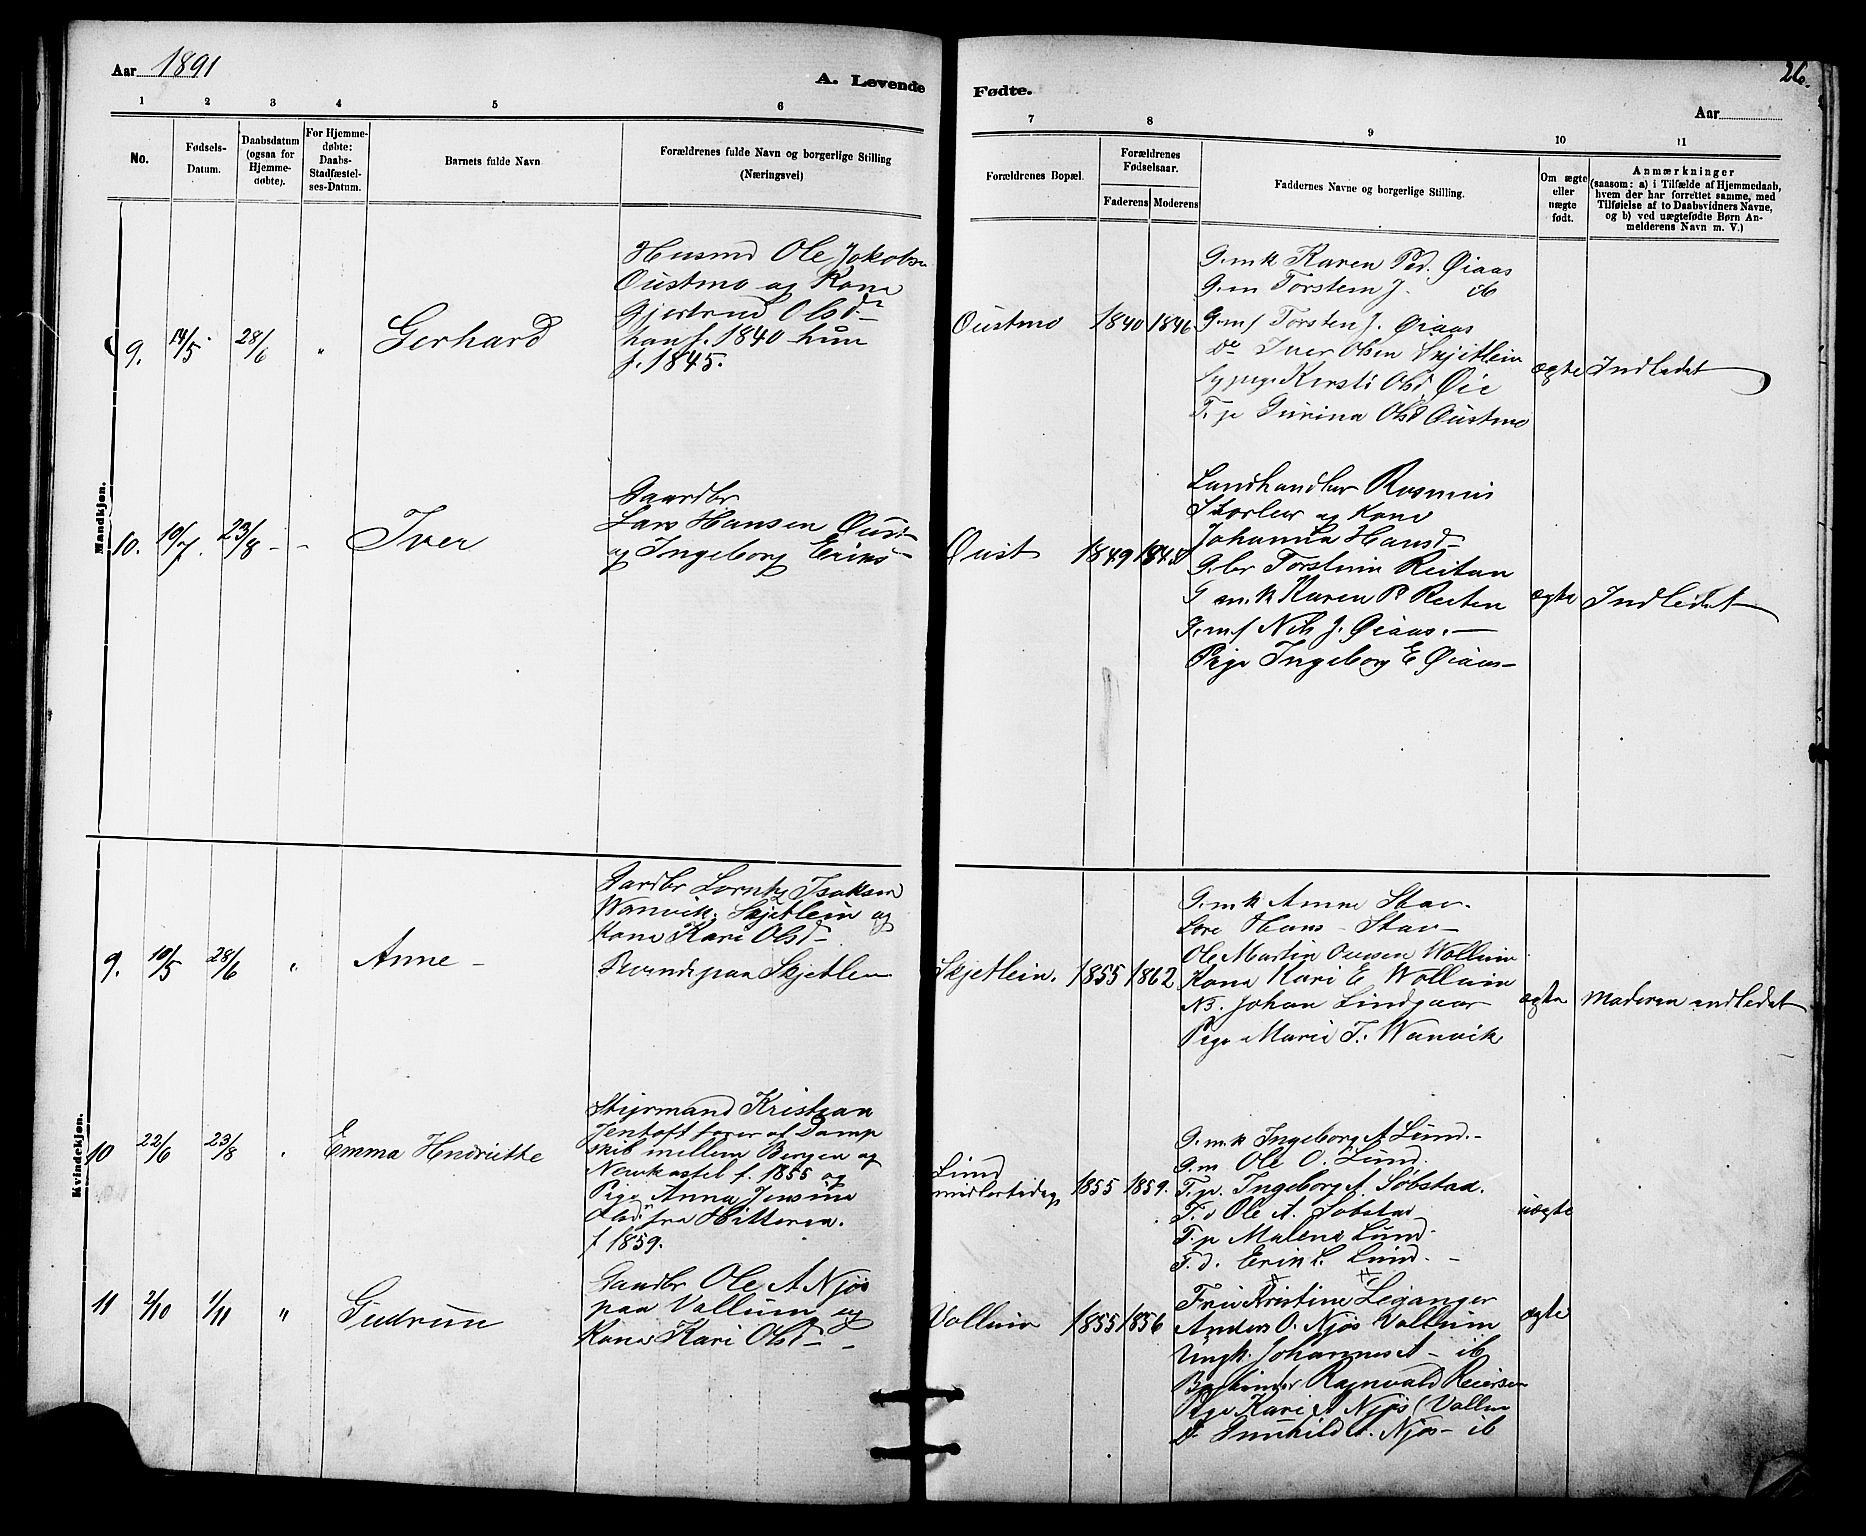 Aar 1891
A. Levende
Fødte.
26.
Aar
1 2 3 4 5 6
7 8 9 10 11
No.
Fødsels-
Datum.
Daabsdatum
(ogsaa for
Hjemme-
døbte).
For Hjemme-
døbte:
Daabs-
Stadfæstel-
ses-Datum.
Barnets fulde Navn
Forældrenes fulde Navn og borgerlige Stilling
(Næringsvei)
Forældrenes Bopæl.
Forældrenes
Fødselsaar.
Faderens Moderens
Faddernes Navne og borgerlige Stilling.
Om ægte
eller
uægte
født.
Anmærkninger
(saasom: a) i Tilfælde af Hjemmedaab,
hvem der har forrettet samme, med
Tilføielse af to Daabsvidners Navne,
og b) ved uægtefødte Børn An-
melderens Navn m. V.)
Mandkjøn.
9. 14/5 28/6 " Gerhard
Husmd Ole Jokobsn
Oustmo og Kone
Gjertrud Olsd
han f. 1840 hun
f. 1845.
Oustmo 1840 1846
G.m.k Karen Ped. Øiaas
G.m Torstein J. ib
G.m.f Torsten J. Øiaas
Do Iver Olsen Skjetlein
Kersti Olsd Øie
T.p Gurina Olsd Oustmo
ægte Indledet
10. 10/7. 23/8 - - Iver
Gaardbr
Lars Hansen Øust
og Ingeborg Eriks-
Øust 1849 1848
Landhandler Rasmus
Storler og Kone
Johanna Hansd-
G.br Torstein Reitan
G m.k Karen P. Reiten
G.m.f Nils J. Øiaas.-
Pige Ingeborg E Øiaas-
ægte Indledet
Kvindekjøn.
9. 10/5 28/6 " Anne -
Gardbr Lorntz Isaksen
Wanvik, Skjetlein og
Kone Kari Olsd-
paa Skjetlen
Skjetlein. 1855 1862
G.m.k Anne Stav-
Hans - Stav-
Ole Martin Ousen Wollum
Kone Kari E Wollum
Johan Lindgaar
Pige Marie I. Wanvik
ægte Moderen indledet
10 22/6 23/8 Emma Hendriette
Styrmand Kristian
Jentoft farer af Damp
skib mellem Bergen og
Newkastel f. 1855 og
Pige Anna Jensine
Olsd. fra Hitteren.
f 1859.
Lund
midlertidigt 1855 1859.
G.m.k Ingeborg A Lund.-
G.m Ole O. Lund.
T.p. Ingeborg A. Søbstad.
T.d Ole A. Søbstad
T.p Malene Lund.
T.d. Erik L. Lund. -
uægte
11 2/10 1/11 " Gudrun
Gaardbr Ole A Njøs
paa Vollum og
Kone Kari Olsd-
Vollum 1855 1856
Fru Kristine Leganger
Anders O. Njøs Vollum
Ungk. Johannes A - ib
Ragnvald Reiersen
Pige Kari A Njøs (Vollum
Do Gunhild A. Njøs - ib
ægte